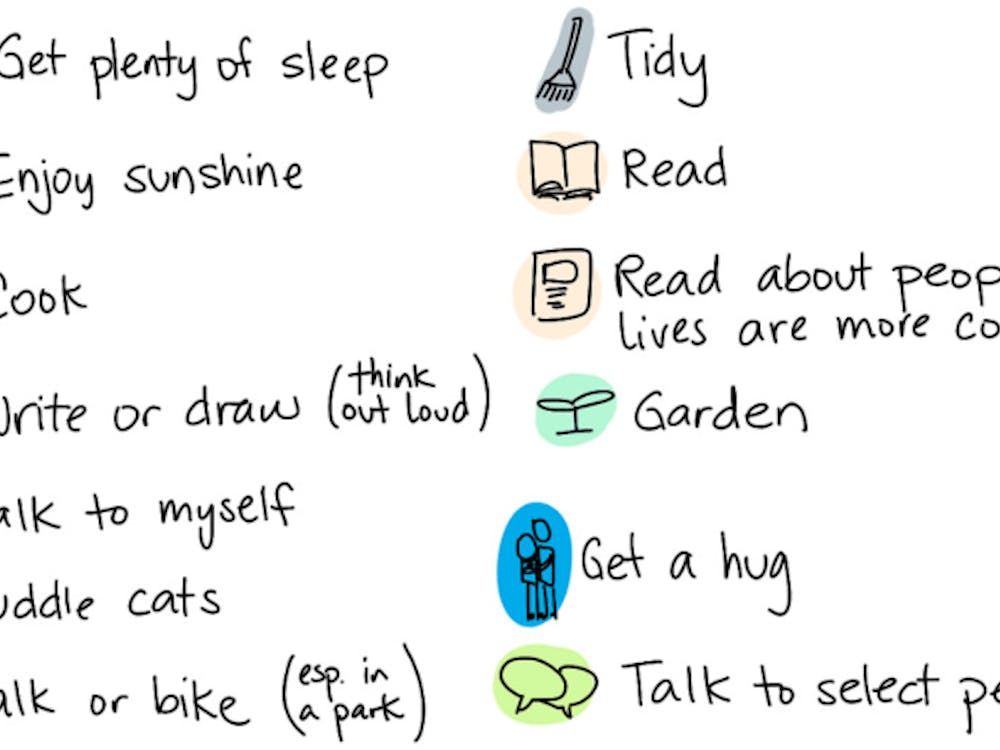 Get plenty of sleep
Enjoy sunshine
Cook
Write or draw (think
out loud)
alk to myself
uddle cats
alk or bike (esp. in
a park)
Tidy
Read
Read about peop
lives are more co
Garden
Get a hug
Talk to select pe